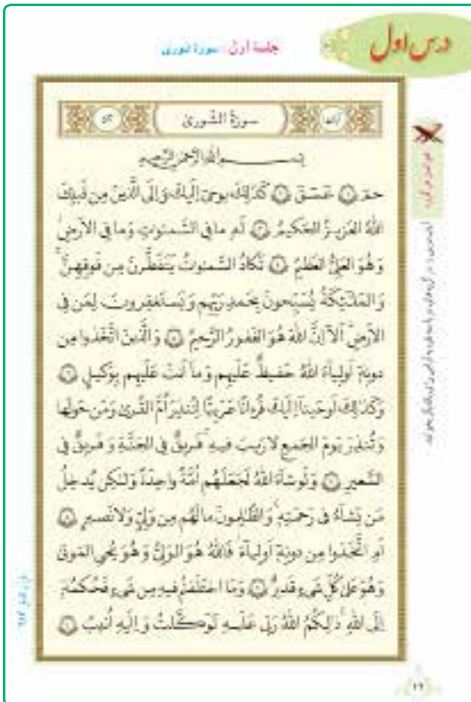 درس اول
جلسه اول : سورهٔ شوری
سورة الشورى
بسم الله الرحمن الرحيم
حم ۝ عسق ۝ كذلك يوحى اليك و الى الذين من قبلك
الله العزيز الحكيم ۝ له ما فى السموت و ما فى الارض
و هو العلى العظيم ۝ تكاد السموت يتفطرن من فوقهن
و الملئكة يسبحون بحمد ربهم و يستغفرون لمن فى
الارض الا ان الله هو الغفور الرحيم ۝ و الذين اتخذوا من
دونه اولياء الله حفيظ عليهم و ما انت عليهم بوكيل ۝
و كذلك اوحينا اليك قرءانا عربيا لتنذر ام القرى و من حولها
و تنذر يوم الجمع لا ريب فيه فريق فى الجنة و فريق فى
السعير ۝ و لو شاء الله لجعلهم امة واحدة و لكن يدخل
من يشاء فى رحمته و الظالمون ما لهم من ولى و لا نصير ۝
ام اتخذوا من دونه اولياء فالله هو الولى و هو يحى الموتى
و هو على كل شىء قدير ۝ و ما اختلفتم فيه من شىء فحكمه
الى الله ذلكم الله ربى عليه توكلت و اليه انيب ۝